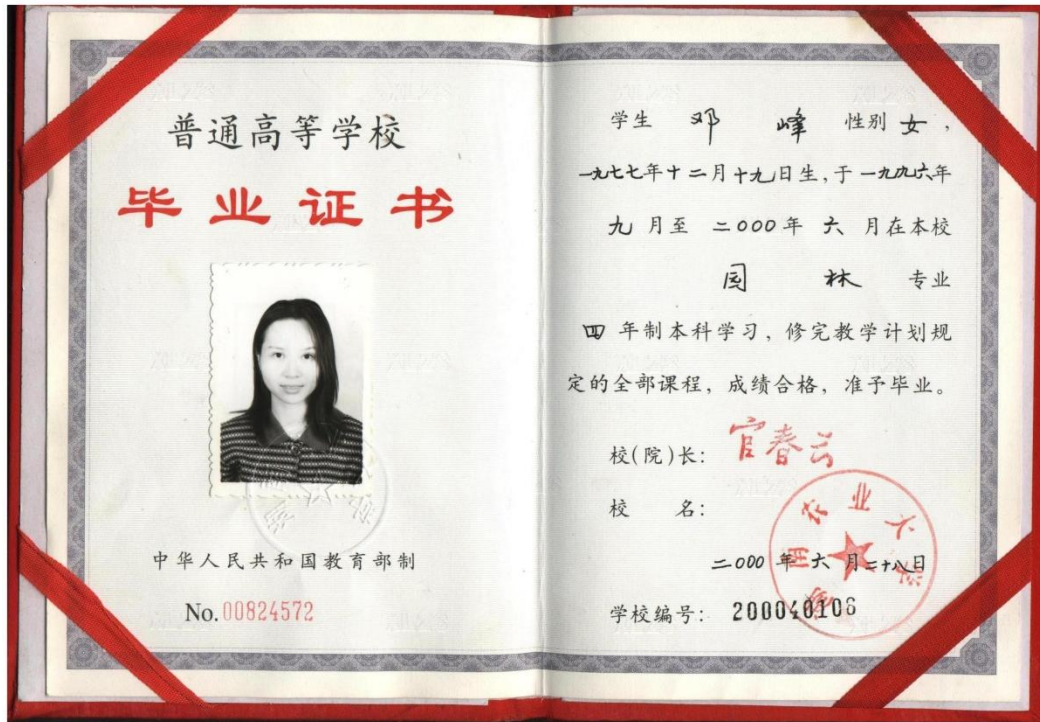 普通高等学校
毕业证书
中华人民共和国教育部制
No.00824572
学生 邓 峰 性别 女，
一九七七年十二月十九日生，于一九九六年
九月至 二000年 六 月在本校
园 林 专业
四 年制本科学习，修完教学计划规
定的全部课程，成绩合格，准予毕业。
校(院)长：官春云
校 名：
湖南农业大学
二000年六月二十八日
学校编号：200040106